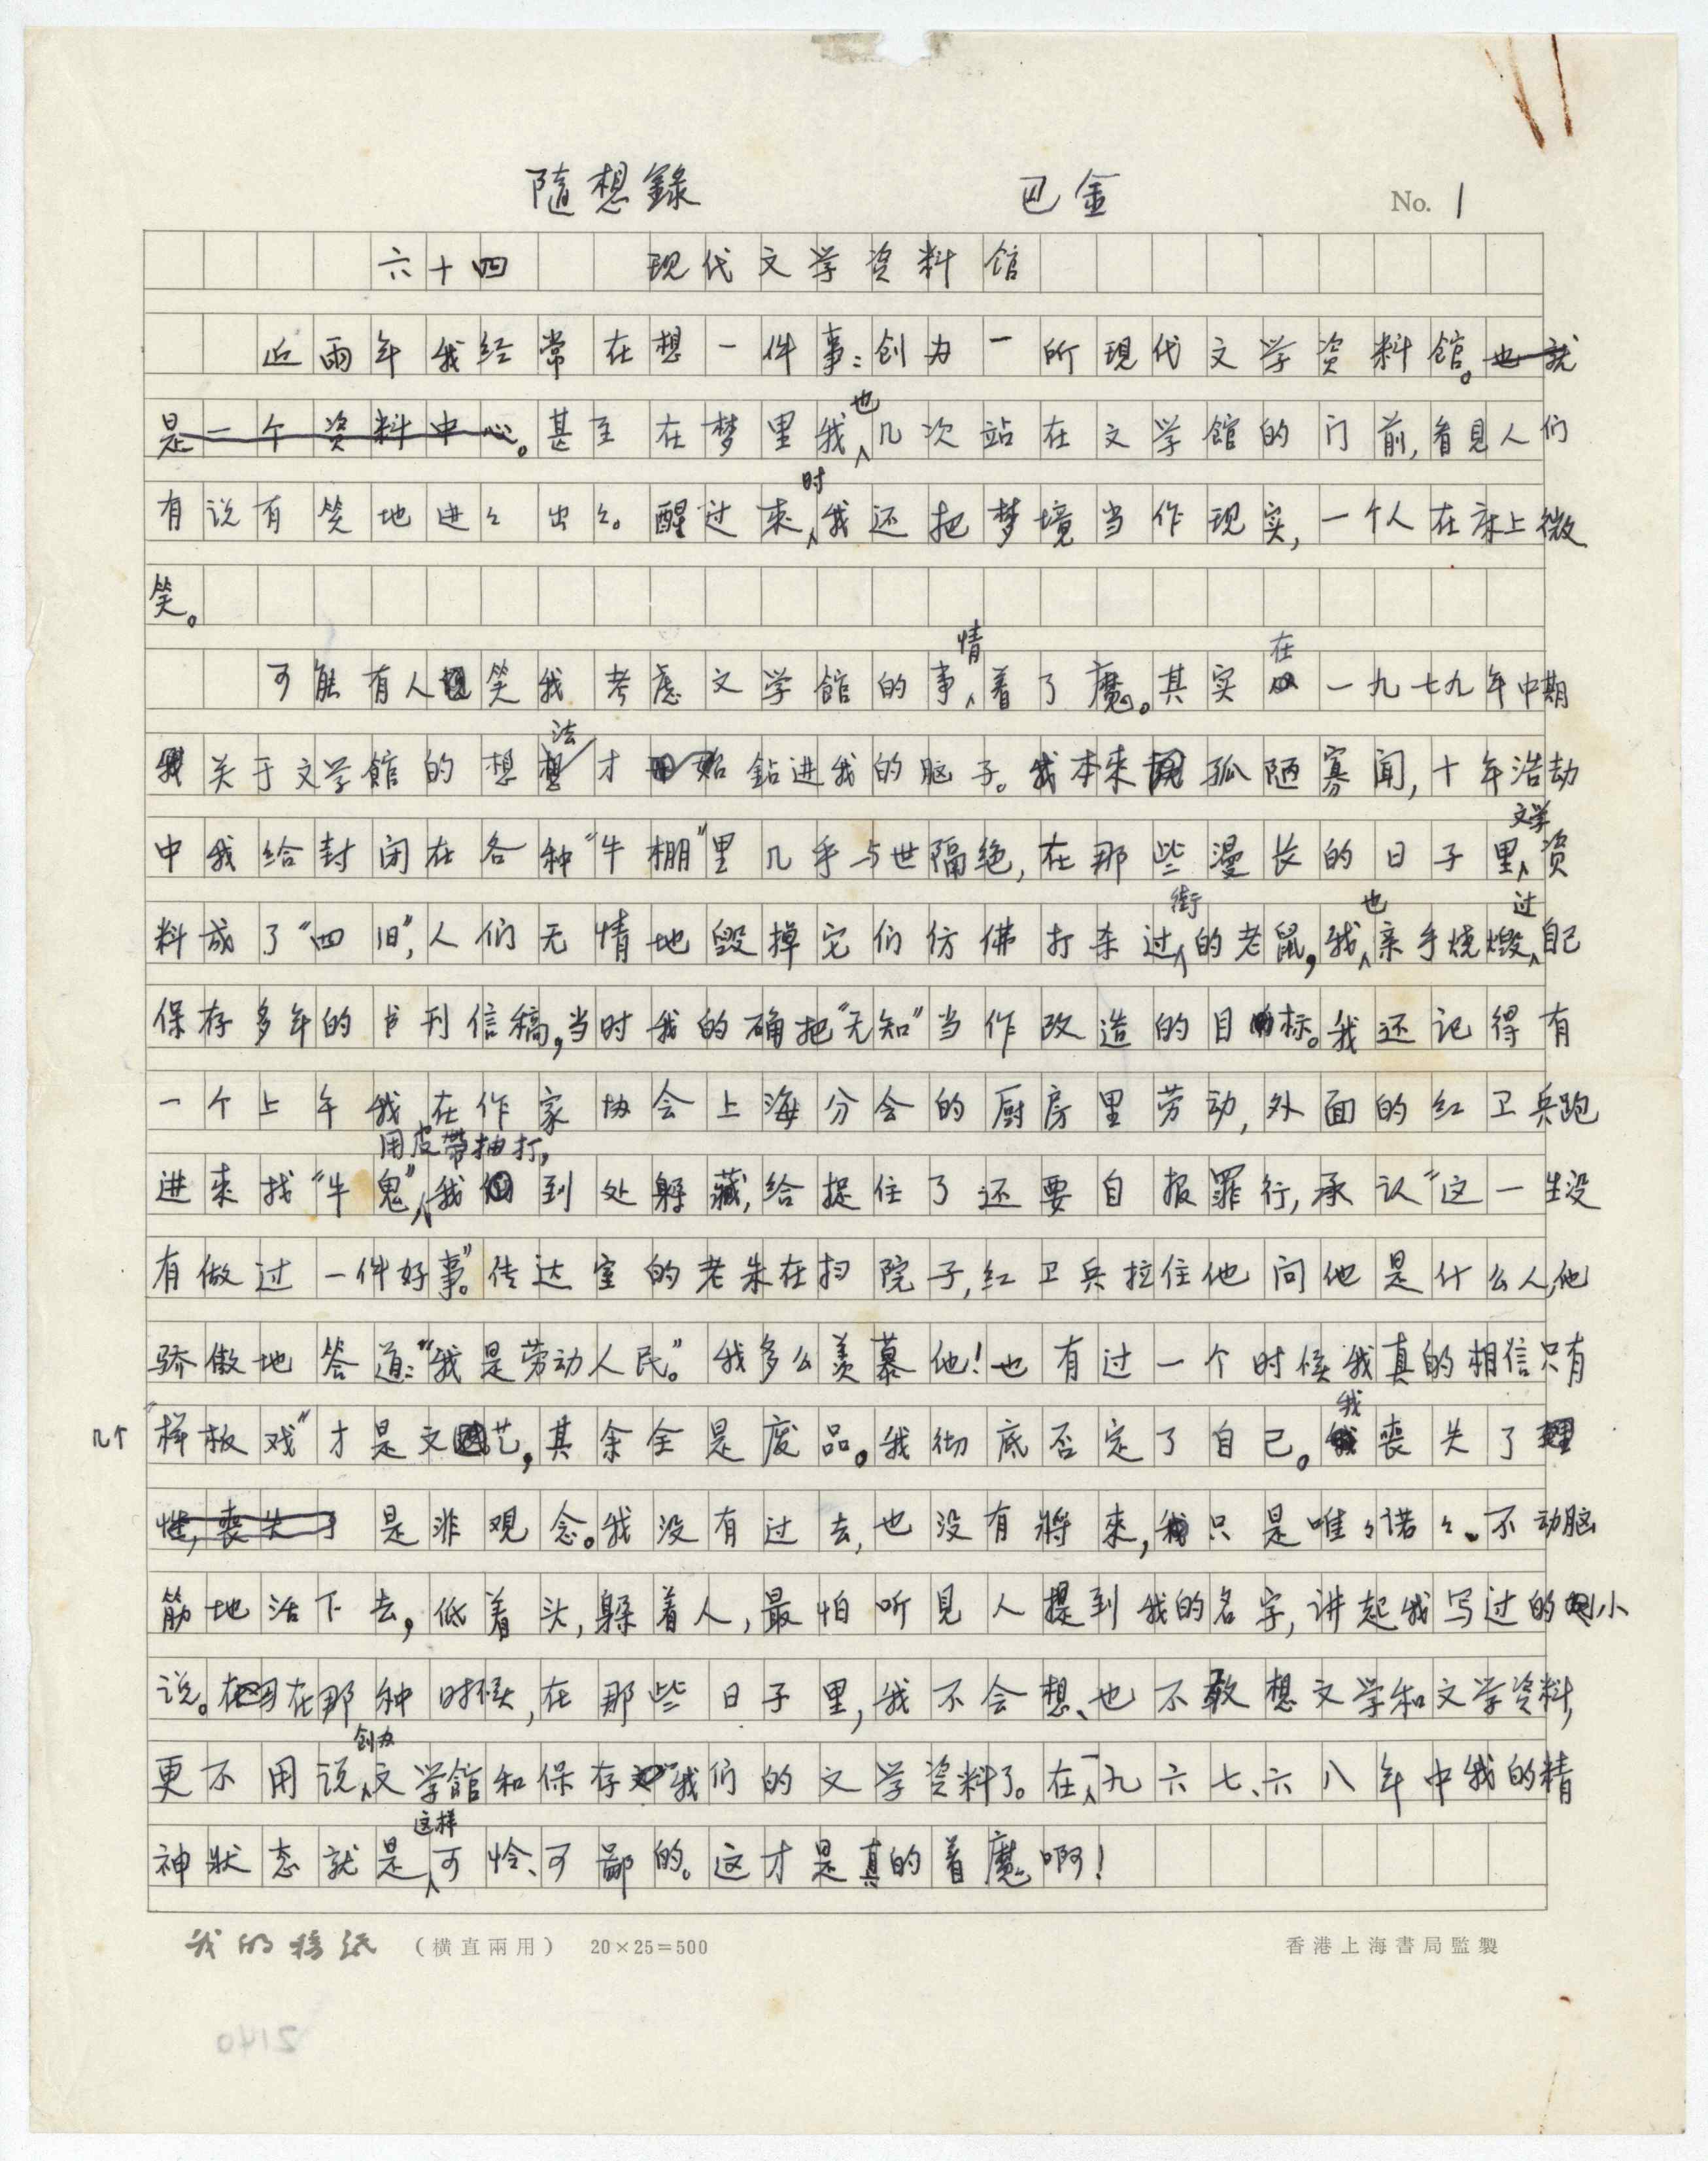 隨想錄 巴金 No. 1
六十四 现代文学资料馆
近兩年我经常在想一件事:创办一所现代文学资料馆。也就
是一个资料中心。甚至在梦里我也几次站在文学馆的门前,看見人们
有说有笑地进々出々。醒过来时我还把梦境当作现实,一个人在床上微
笑。
可能有人笑我考虑文学馆的事情着了魔。其实在一九七九年中期
关于文学館的想法才鉆进我的脑子。我本来孤陋寡闻,十年浩劫
中我给封闭在各种“牛棚”里几乎与世隔绝,在那些漫长的日子里文学资
料成了“四旧”,人们无情地毁掉它们仿佛打杀过街的老鼠,我也亲手烧燬过自己
保存多年的书刊信稿,当时我的确把“无知”当作改造的目标。我还记得有
一个上午我在作家协会上海分会的厨房里劳动,外面的红卫兵跑
进来找“牛鬼”用皮带抽打,我到处躲藏,给捉住了还要自报罪行,承认“这一生没
有做过一件好事”。传达室的老朱在扫院子,红卫兵拉住他问他是什么人,他
骄傲地答道:“我是劳动人民。”我多么羡慕他!也有过一个时候我真的相信只有
几个“样板戏”才是文艺,其余全是废品。我彻底否定了自己。我丧失了理
性,丧失了是非观念。我没有过去,也没有将来,只是唯々诺々、不动脑
筋地活下去,低着头,躲着人,最怕听見人提到我的名字,讲起我写过的小
说。在那种时候,在那些日子里,我不会想、也不敢想文学和文学资料,
更不用说创办文学館和保存我们的文学资料了。在一九六七、六八年中我的精
神狀态就是这样可怜、可鄙的。这才是真的着魔啊!
我的稿纸 (橫直兩用) 20×25=500 香港上海書局監製
2140